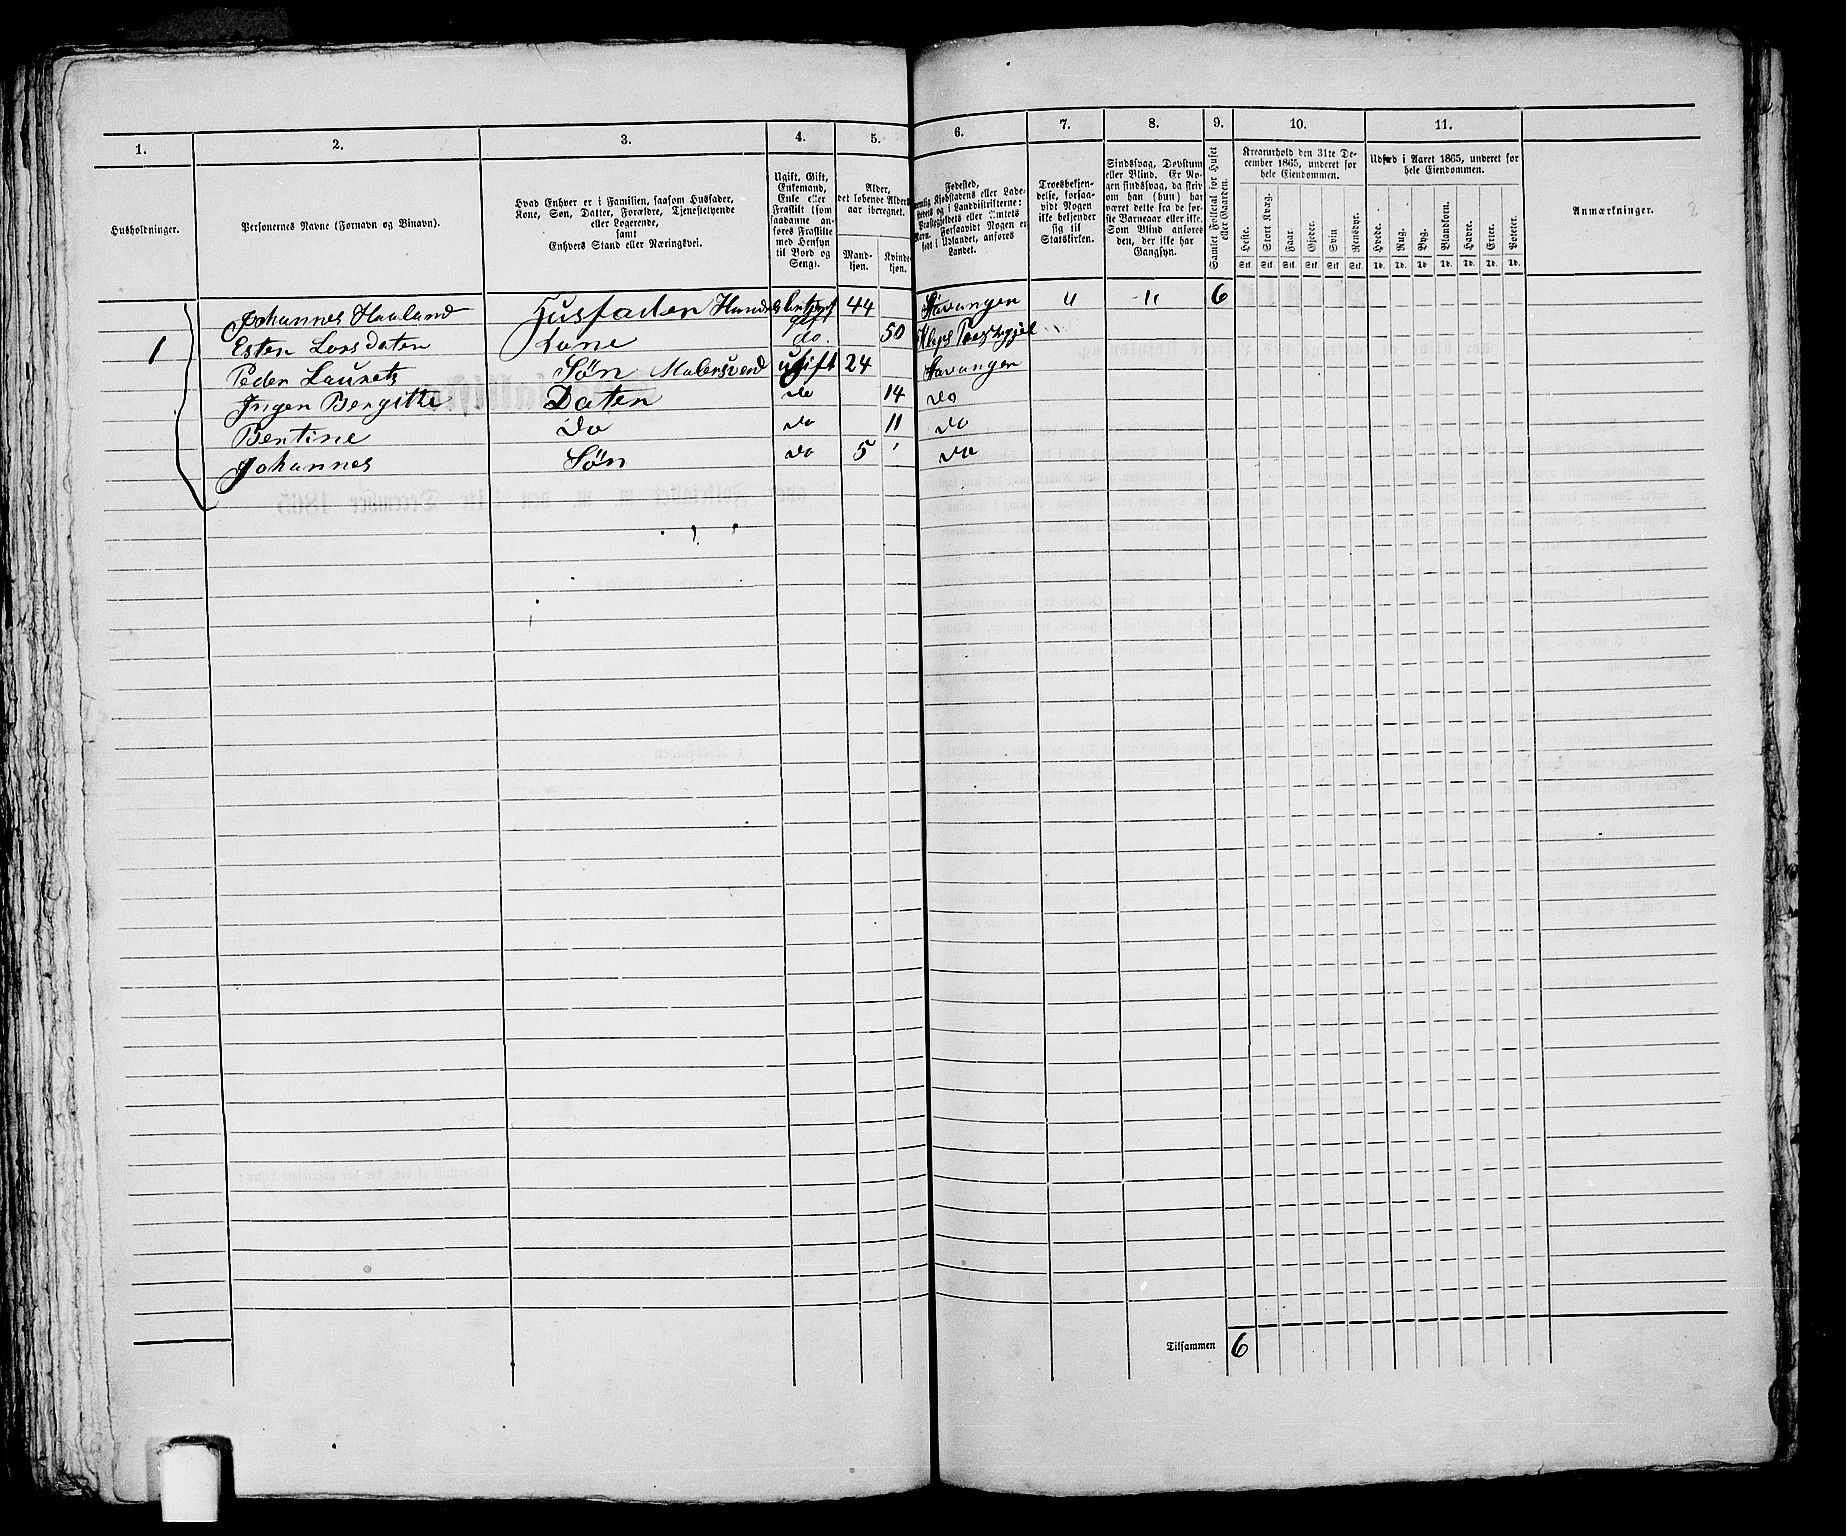 1. 2. 3. 4. 5. 6. 7. 8. 9. 10. 11.
Husholdninger.
Personernes Navne (Fornavn og Binavn).
Hvad Enhver er i Familien, saasom Husfader,
Kone, Søn, Datter, Forældre, Tjenestetyende
eller Logerende,
samt
Enhvers Stand eller Næringsvei.
Ugift, Gift,
Enkemand,
Enke eller
Fraskilt (som
saadanne an-
føres Fraskilte
med Hensyn
til Bord og
Seng).
Alder,
det løbende Alders-
aar iberegnet.
Mand-
kjøn.
Kvinde-
kjøn.
Fødested,
Kjøbstadens eller Lade-
stedets
i Landdistrikterne:
Præstegjeldets eller Amtets
Navn. Forsaavidt Nogen er
født i Udlandet, anføres
Landet.
Troesbekjen-
delse, forsaa-
vidt Nogen
ikke bekjender
sig til
Statskirken.
Sindssvag, Døvstum
eller Blind. Er No-
gen sindssvag, da skriv
om han (hun) har
været dette fra de før-
ste Barneaar eller ikke.
Som Blind anføres
den, der ikke har
Gangsyn.
Samlet Folketal for Huset
eller Gaarden.
Kreaturhold den 31te De-
cember 1865, underet for
hele Eiendommen.
Heste. Stort Kvæg. Faar. Gjeder. Svin Rensdyr.
Stk. Stk. Stk. Stk. Stk. Stk.
Udsæd i Aaret 1865, underet for
hele Eiendommen.
Hvede. Rug. Byg. Blandkorn. Havre. Erter. Poteter.
Td. Td. Td. Td. Td. Td. Td.
Anmærkninger.
Johannes Haaland Husfaden gift 44 Stavangen " " 6
1 Esten Larsdaten Kone do. 50 Kleps
Peder Laurets Søn Malersvend ugift 24 Stavangen
Ingen Bergitte Daten do 14 do
Bentine do do 11 do
Johannes Søn do 5 do
Tilsammen 6